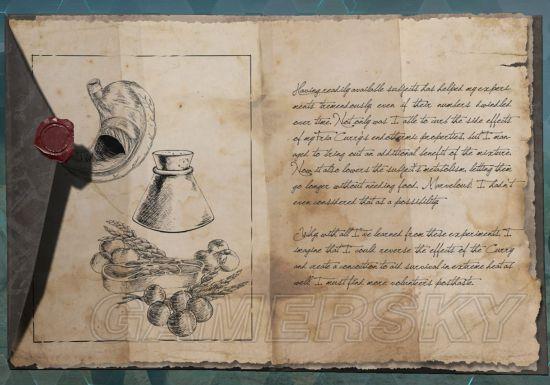 Having readily available subjects has helped my experi-
ments tremendously, even if their numbers dwindled
over time. Not only was I able to curb the side effects
of my Fria Curry's endothermic properties, but I man-
aged to bring out an additional benefit of the mixture.
Now it also lowers the subject's metabolism, letting them
go longer without needing food. Marvelous! I hadn't
even considered that as a possibility.
Why, with all I've learned from these experiments, I
imagine that I could reverse the effects of the Curry
and create a concoction to aid survival in extreme heat as
well. I must find more volunteers posthaste.
GAMERSKY